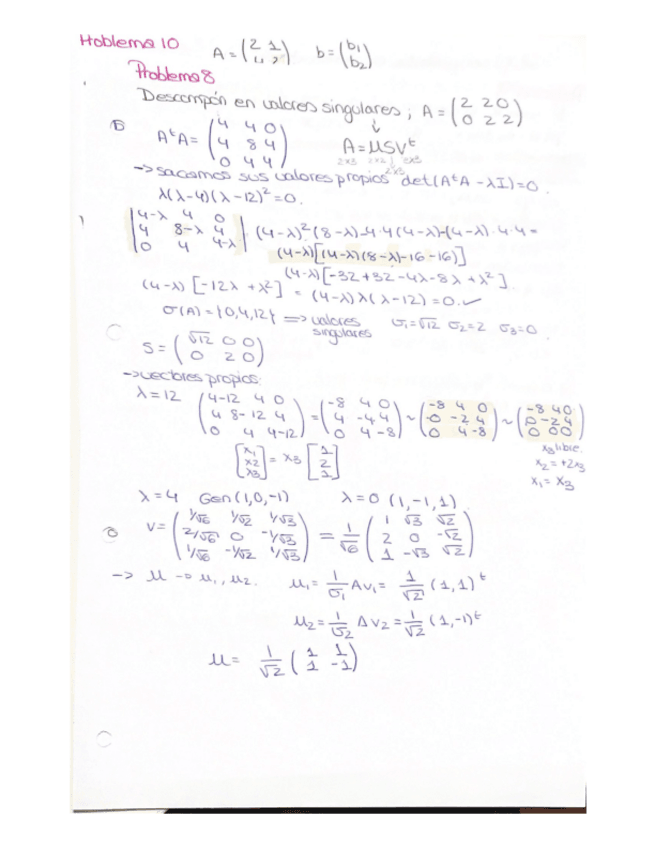 Problema 10 A = (2 1 / 4 2) b = (b1 / b2)
Problema 8
Descompón en valores singulares ; A = (2 2 0 / 0 2 2)
AᵗA = (4 4 0 / 4 8 4 / 0 4 4) A = USVᵗ
2x3 2x2 3x3
2x3
→ sacamos sus valores propios det(AᵗA - λI) = 0.
λ(λ-4)(λ-12)² = 0.
|4-λ 4 0 / 4 8-λ 4 / 0 4 4-λ| (4-λ)²(8-λ)-4·4(4-λ)-(4-λ)·4·4 =
(4-λ)[(4-λ)(8-λ)-16-16)]
(4-λ)[-32+32-4λ-8λ+λ²].
(4-λ)[-12λ+λ²] = (4-λ)λ(λ-12) = 0. ✓
σ(A) = {0,4,12} ⇒ valores singulares σ1=√12 σ2=2 σ3=0.
S = (√12 0 0 / 0 2 0)
→ vectores propios:
λ=12 (4-12 4 0 / 4 8-12 4 / 0 4 4-12) = (-8 4 0 / 4 -4 4 / 0 4 -8) ~ (-8 4 0 / 0 -2 4 / 0 4 -8) ~ (-8 4 0 / 0 -2 4 / 0 0 0)
[x1 / x2 / x3] = x3 [1 / 2 / 1]
x3 libre.
x2 = +2x3
x1 = x3
λ=4 Gen(1,0,-1) λ=0 (1,-1,1)
V = (1/√6 1/√2 1/√3 / 2/√6 0 -1/√3 / 1/√6 -1/√2 1/√3) = 1/√6 (1 √3 √2 / 2 0 -√2 / 1 -√3 √2)
→ U → u1, u2. u1 = 1/σ1 Av1 = 1/√2 (1,1)ᵗ
u2 = 1/σ2 Av2 = 1/√2 (1,-1)ᵗ
U = 1/√2 (1 1 / 1 -1)